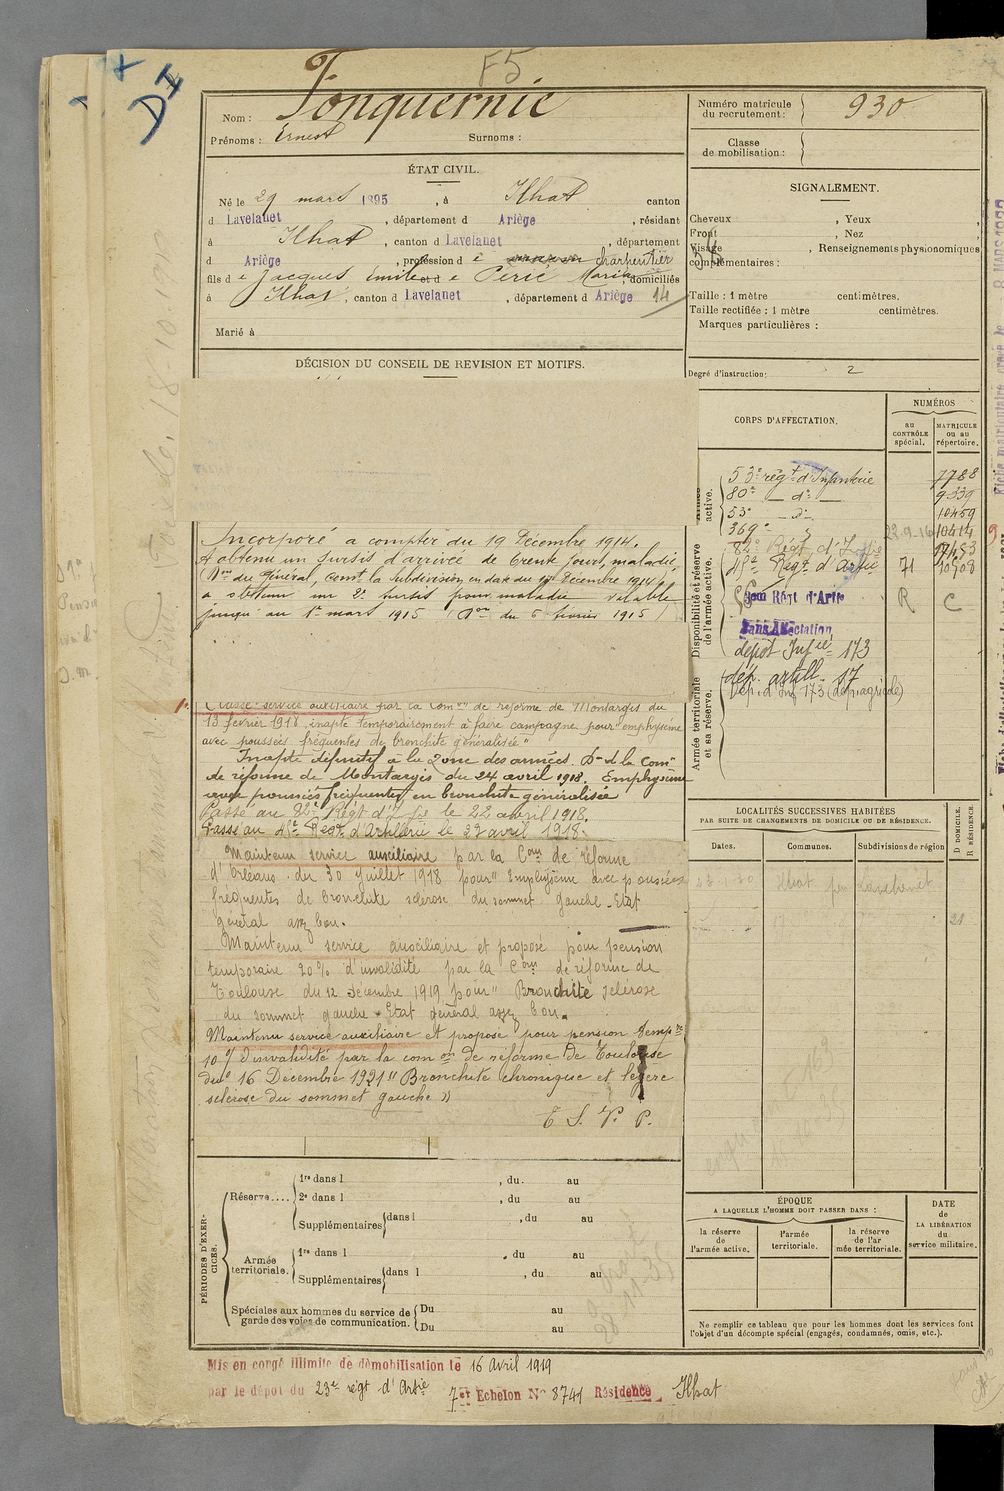 F5
DI
Nom : Fonquernie
Prénoms : Ernest Surnoms :
ÉTAT CIVIL.
Né le 29 mars 1895, à Ilhat canton
d Lavelanet, département d Ariège, résidant
à Ilhat, canton d Lavelanet, département
d Ariège, profession d charpentier
fils de Jacques Emile et de Perié Maria, domiciliés
à Ilhat, canton d Lavelanet, département d Ariège 14
Marié à
DÉCISION DU CONSEIL DE REVISION ET MOTIFS.
Incorporé à compter du 19 Décembre 1914.
A obtenu un sursis d'arrivée de trente jours, maladie,
Don du Général, Comt la Subdivision, en date du 17 Décembre 1914
a obtenu un 2e sursis pour maladie valable
jusqu'au 1er mars 1915 (Don du 5 février 1915)
Classé service auxiliaire par la Comon de réforme de Montargis du
13 février 1918, inapte temporairement à faire campagne pour "emphysème
avec poussées fréquentes de bronchite généralisée"
Inapte définitif à la zone des armées. Don de la Comon
de réforme de Montargis du 24 avril 1918. Emphysème
avec poussées fréquentes en bronchite généralisée
Passé au 82e Régt d'Ifie le 22 avril 1918.
Passé au 45e Régt d'Artillerie le 27 avril 1918.
Maintenu service auxiliaire par la Comon de réforme
d'Orléans du 30 Juillet 1918 pour "Emphysème avec poussées
fréquentes de bronchite sclérose du sommet gauche - Etat
général assez bon.
Maintenu service auxiliaire et proposé pour pension
temporaire 20% d'invalidité par la Comon de réforme de
Toulouse du 12 Décembre 1919 pour "Bronchite sclérose
du sommet gauche - Etat général assez bon.
Maintenu service auxiliaire et proposé pour pension tempre
10% d'invalidité par la comon de réforme de Toulouse
du 16 Décembre 1921 "Bronchite chronique et légère
sclérose du sommet gauche"
T. S. V. P.
PÉRIODES D'EXERCICES.
Réserve.... 1re dans l , du au
2e dans l , du au
Supplémentaires dans l , du au
Armée territoriale. 1re dans l , du au
Supplémentaires dans l , du au
Spéciales aux hommes du service de garde des voies de communication. Du au
Du au
Numéro matricule du recrutement : 930
Classe de mobilisation :
SIGNALEMENT.
Cheveux , Yeux ,
Front , Nez ,
Visage , Renseignements physionomiques
complémentaires :
Taille : 1 mètre centimètres.
Taille rectifiée : 1 mètre centimètres.
Marques particulières :
Degré d'instruction : 2
CORPS D'AFFECTATION.
NUMÉROS
au CONTRÔLE spécial.
MATRICULE ou au répertoire.
Armée active.
53e régt d'Infanterie 7788
80e — do — 9339
53e — do — 10459
369e " 22-9-16 10414
82e Régt d'Ifie
Disponibilité et réserve de l'armée active.
45e Régt d'Artie 71 10908
Régt d'Artie R C
Sans Affectation
dépot Infie 173
Armée territoriale et sa réserve.
dép. artill. 17
Dép. d'Inf 173 (dép. agricole)
LOCALITÉS SUCCESSIVES HABITÉES
PAR SUITE DE CHANGEMENTS DE DOMICILE OU DE RÉSIDENCE.
Dates. Communes. Subdivisions de région D DOMICILE. R RÉSIDENCE.
Ilhat par Lavelanet
ÉPOQUE
A LAQUELLE L'HOMME DOIT PASSER DANS :
la réserve de l'armée active.
l'armée territoriale.
la réserve de l'armée territoriale.
DATE de LA LIBÉRATION du service militaire.
Ne remplir ce tableau que pour les hommes dont les services font
l'objet d'un décompte spécial (engagés, condamnés, omis, etc.).
Mis en congé illimité de démobilisation le 16 Avril 1919
par le dépot du 23e régt d'Artie 7er Echelon No 8741 Résidence Ilhat